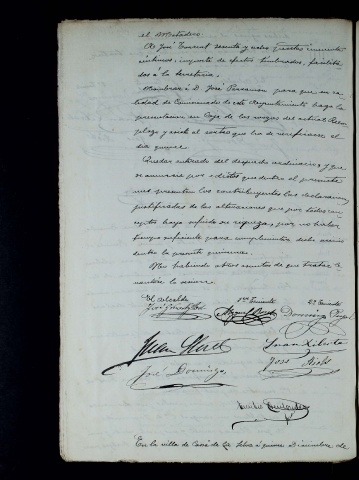 el Matadero
A José Tourrat sesenta y ocho pesetas cincuenta
céntimos importe de efectos timbrados, facilita-
dos á la Secretaría.
Nombrar á D. José para que en ca-
lidad de Comisionado de este Ayuntamiento haga la
presentación en Caja de los mozos del actual Reem-
plazo y asista al sorteo que ha de verificarse el
día quince.
Quedar enterado del despacho ordinario, y que
se anuncie por edictos que dentro el presente
mes presenten los contribuyentes las declaraciones
justificadas de las alteraciones que por todos con-
ceptos haya sufrido su riqueza, por no haber
tiempo suficiente para cumplimentar dicho servicio
dentro la presente quincena.
No habiendo otros asuntos de que tratar se
levantó la sesión.
El Alcalde 1er Teniente 2º Teniente
José Domingo
Juan
José
En la villa de de la Selva á quince Diciembre de